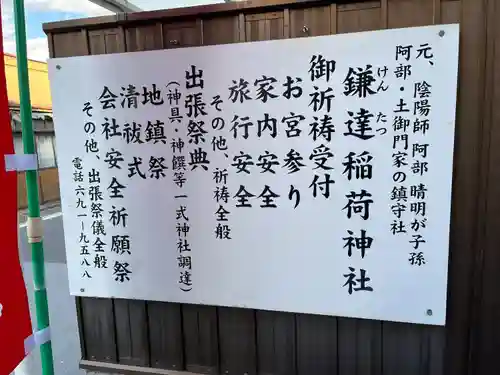 元、陰陽師 阿部 晴明が子孫
阿部・土御門家の鎮守社
鎌達稲荷神社
けん たつ
御祈祷受付
お宮参り
家内安全
旅行安全
その他、祈祷全般
出張祭典
(神具・神饌等一式神社調達)
地鎮祭
清祓式
会社安全祈願祭
その他、出張祭儀全般
電話 六九一ー九五八八